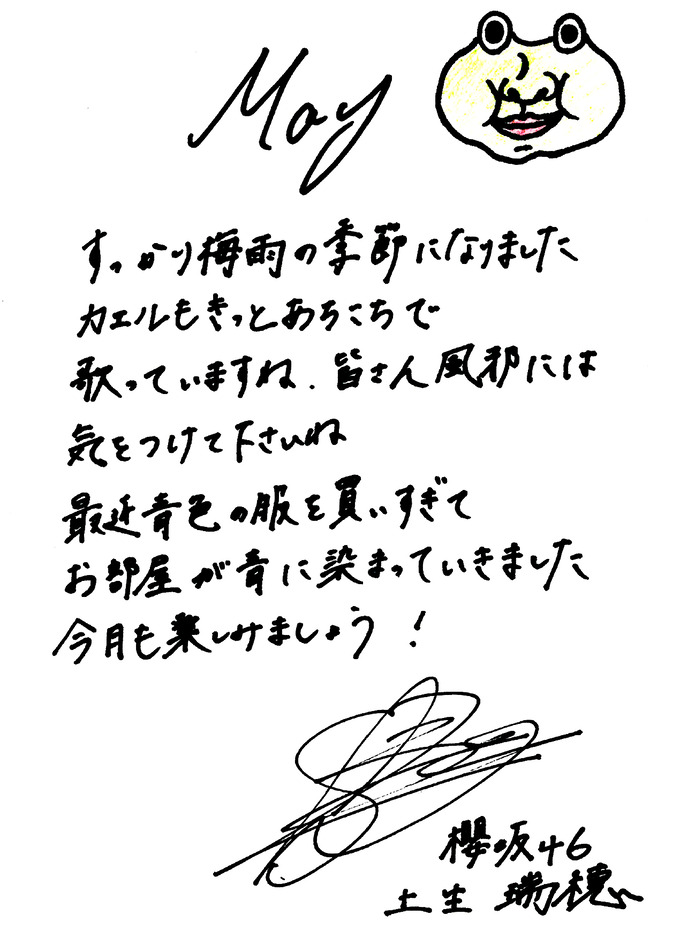 May
すっかり梅雨の季節になりました
カエルもきっとあちこちで
歌っていますね.皆さん風邪には
気をつけて下さいね
最近青色の服を買いすぎて
お部屋が青に染まっていきました
今月も楽しみましょう!
櫻坂46
土生 瑞穂